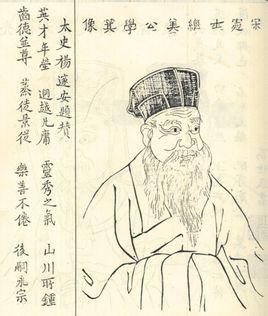 宋憲士總美公學箕像
太史楊邃安題贊
英才年瑩 迥越凡庸 靈秀之氣 山川所鍾
齒德並尊 蒸徒景從 樂善不倦 後嗣永宗